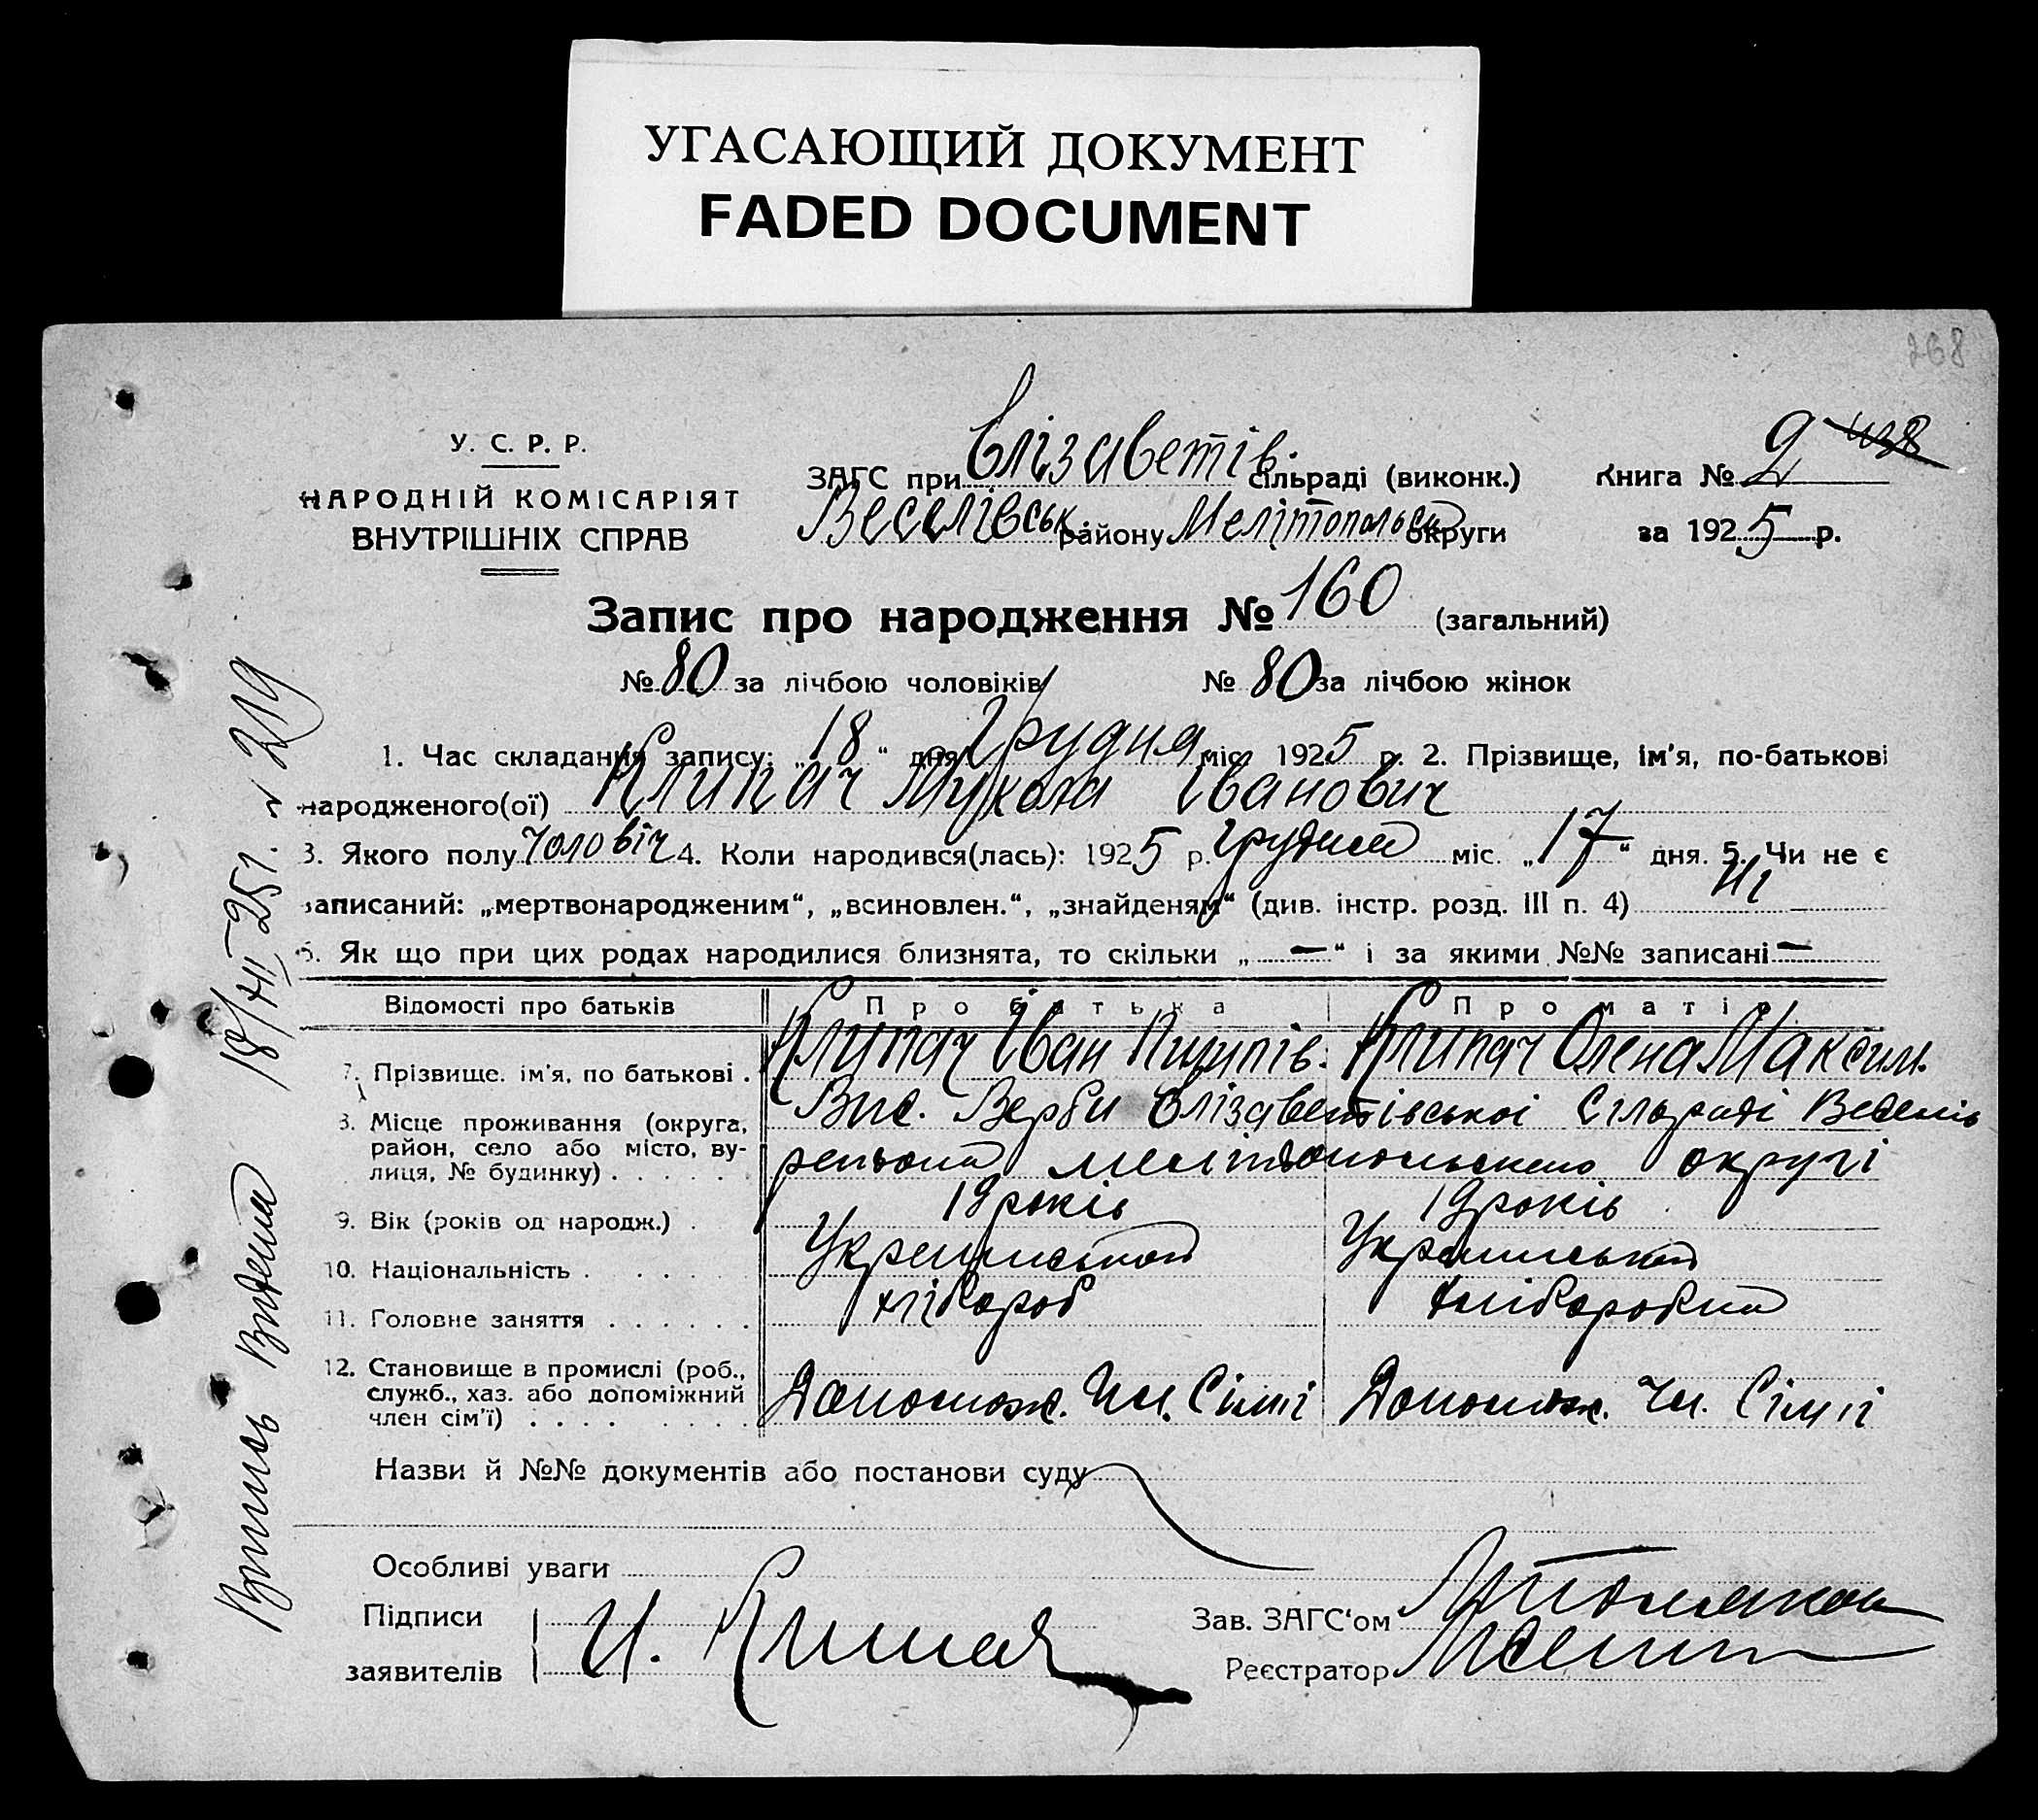 УГАСАЮЩИЙ ДОКУМЕНТ
FADED DOCUMENT
268
У. С. Р. Р.
НАРОДНІЙ КОМІСАРІЯТ
ВНУТРІШНІХ СПРАВ
ЗАГС при Єлізаветів. сільраді (виконк.)
Веселівськ. району Мелітопольськ округи
Книга № 2
за 1925 р.
Запис про народження № 160 (загальний)
№ 80 за лічбою чоловіків № 80 за лічбою жінок
1. Час складання запису: „18“ дня Грудня міс. 1925 р. 2. Прізвище, ім'я, по-батькові
народженого(ої) Клипач Мукола Іванович
3. Якого полу Чоловіч 4. Коли народився(лась): 1925 р. Грудня міс. „17“ дня. 5. Чи не є
записаний: „мертвонародженим“, „всиновлен.“, „знайденям“ (див. інстр. розд. III п. 4) Ні
6. Як що при цих родах народилися близнята, то скільки „—“ і за якими №№ записані —
Відомості про батьків Про батька Про матір
7. Прізвище, ім'я, по батькові . Клипач Іван Пилипів. Клипач Олена Максим.
8. Місце проживання (округа, район, село або місто, вулиця, № будинку) . . . . . Вис. Верби Єлізаветівськоі Сільраді Веселів
району Мелітопольського округі
9. Вік (років од народж.) . 19 років 19 років
10. Національність . . . . . Украинський Украинський
11. Головне заняття . . . . . . хлібороб хлібаробка
12. Становище в промислі (роб., служб., хаз. або допоміжний член сім'ї) . . . . Допомож. Чл. Сімії Допомож. Чл. Сімії
Назви й №№ документів або постанови суду
Особливі уваги
Підписи
заявителів
И. Клипач
Зав. ЗАГС'ом
Реєстратор
Випись Видана 18/XII 25 г. № 219